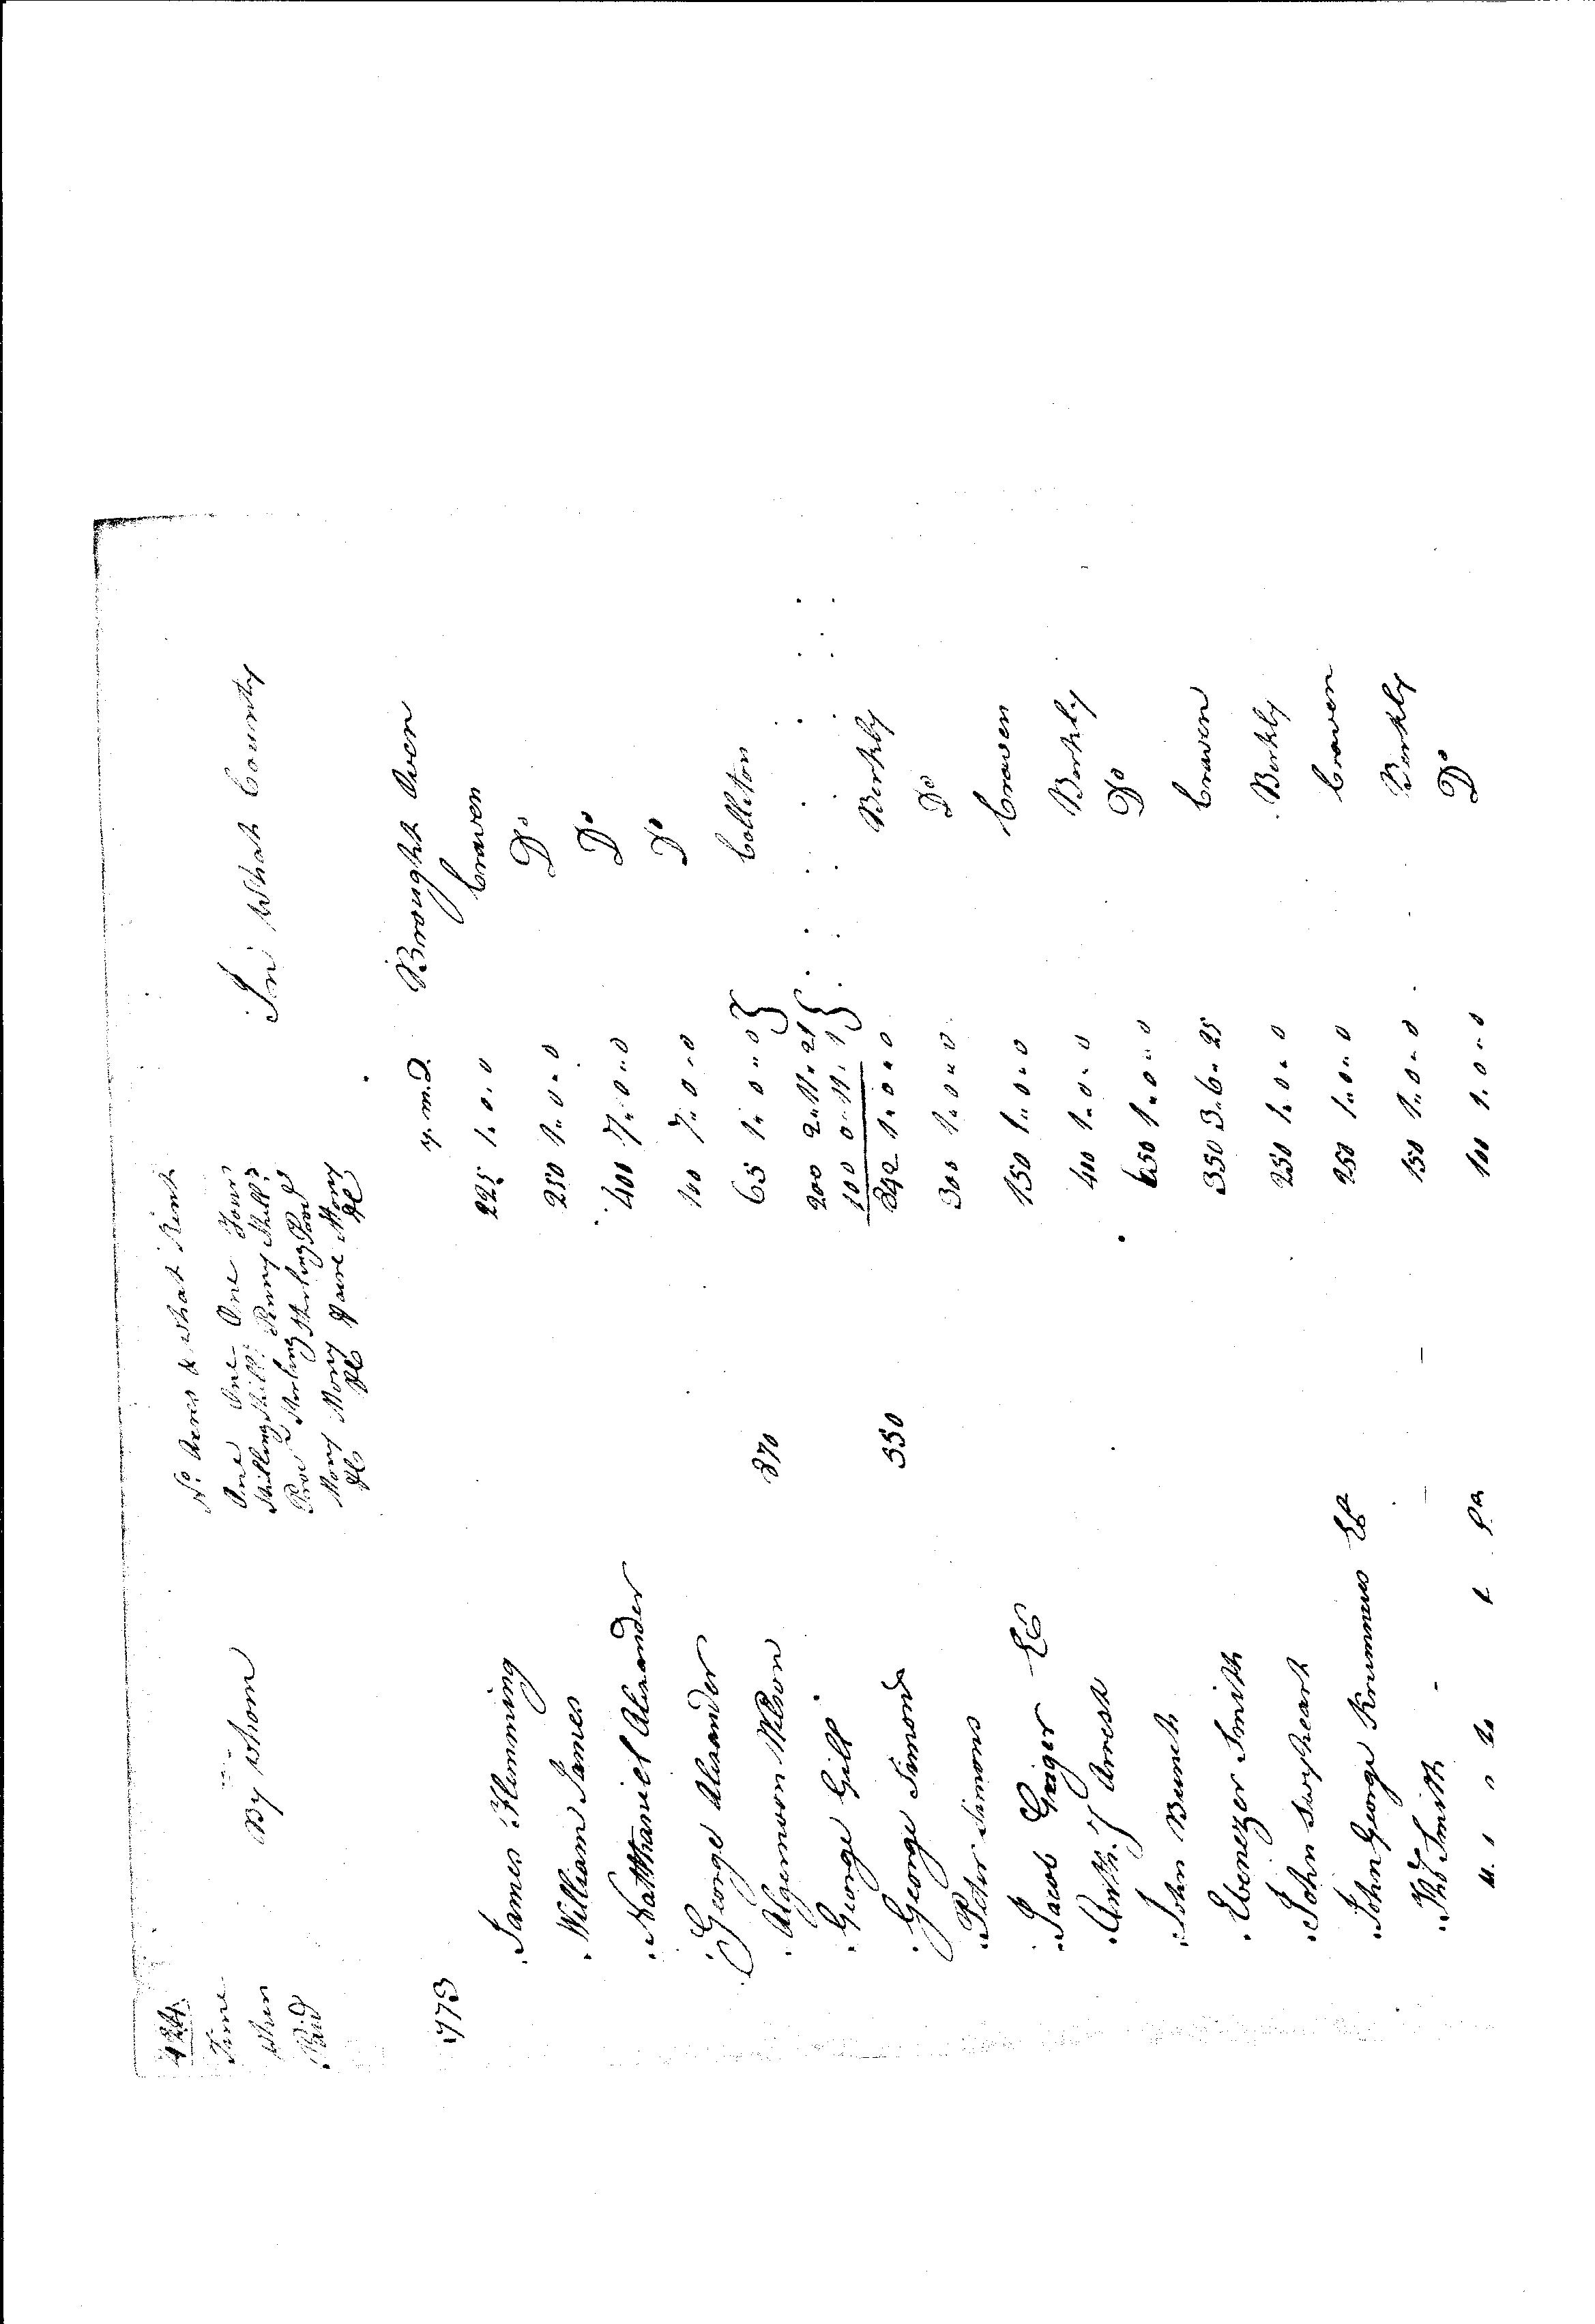 424
Time when Paid
By Whom
No. Acres & what Rent
One Shilling Proc Mony
One Shill: Sterling Mony
One Penny Sterling
Four Shill:s Proc Mony
In What County
y. m. D.
1773 Brought Over
James Flemming 225 1.. 0.. 0 Craven
William James 250 1.. 0.. 0 Do
Natthaniel Alexander 400 7.. 0.. 0 Do
George Alexander 100 7.. 0.. 0 Do
Algernoon Wilson 370 65 1.. 0.. 0 Colleton
George Gill 200 2.. 11.. 21
100 0.. 11.. 1
George Simons 350 342 1.. 0.. 0 Berkly
Peter Simons 300 1.. 0.. 0 Do
Jacob Geiger 150 1.. 0.. 0 Craven
Anth:y Amesk 400 1.. 0.. 0 Berkly
John Bunch 650 1.. 0.. 0 Do
Ebenezer Smith 350 3.. 6.. 25 Craven
John Swyheart 250 1.. 0.. 0 Berkly
John George Krummes 250 1.. 0.. 0 Craven
Tho:s Smith 150 1.. 0.. 0 Berkly
100 1.. 0.. 0 Do